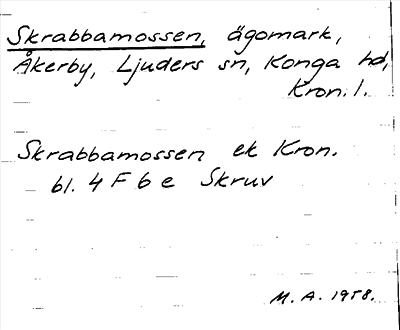 Skrabbamossen, ägomark,
Åkerby, Ljuders sn, Konga hd,
Kron. l.
Skrabbamossen ek Kron.
bl. 4 F 6 e Skruv
M. A. 1958.